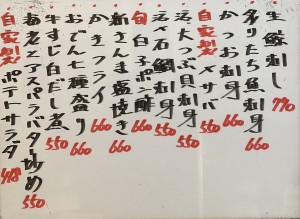 生鯨刺し 770
炙りたち魚刺身 660
かつお刺身 660
自家製 〆サバ 550
活大つぶ貝刺身 660
活〆石鯛刺身 550
旬 白子ポン酢 660
新さんま塩焼き 660
かきフライ 660
おでん七種盛り 660
牛すじ白だし煮 550
アスパラバター炒め 550
自家製 ポテトサラダ